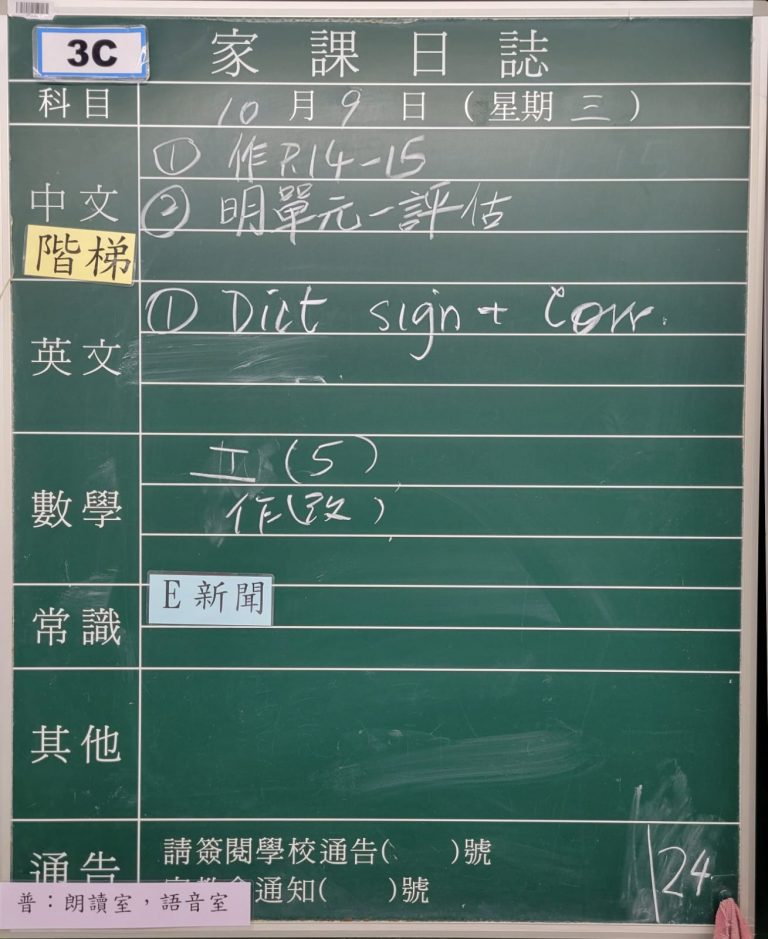 3C 家課日誌
科目 10月9日(星期三)
中文 ① 作P.14-15
② 明單元一評估
階梯
英文 ① Dict sign + Corr.
數學 II (5)
作(改)
常識 E 新聞
其他
通告 請簽閱學校通告( )號
通知( )號
24
普：朗讀室，語音室